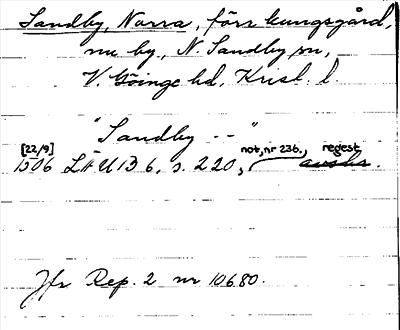 Sandby, Norra, förr kungsgård,
nu by, N. Sandby sn,
V. Göinge hd, Krist. l.
"Sandby -- "
[22/9] not, nr 236., regest
1506 LÄUB 6, s. 220, avskr.
Jfr Rep. 2 nr 10680.